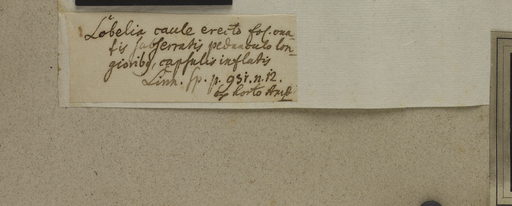 Lobelia caule erecto fol. ova
tis subserratis pedunculo lon
gioribq, capsulis inflatis
Linn. Sp. p. 931. n. 12.
ex horto